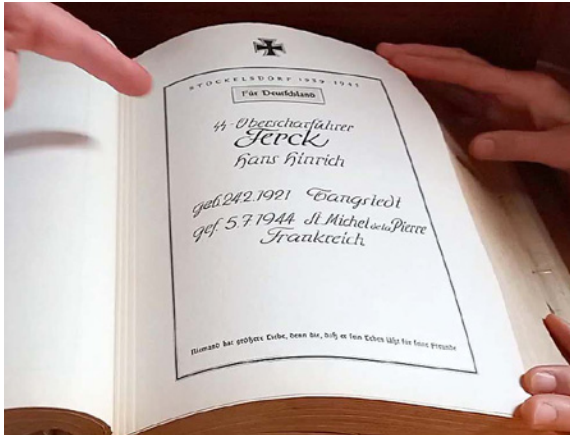 STOCKELSDORF 1939-1945
Für Deutschland
SS-Oberscharführer
Ferck
Hans Hinrich
geb. 24.2.1921 Tangstedt
gef. 5.7.1944 St. Michel de la Pierre
Frankreich
Niemand hat größere Liebe, denn die, daß er sein Leben läßt für seine Freunde